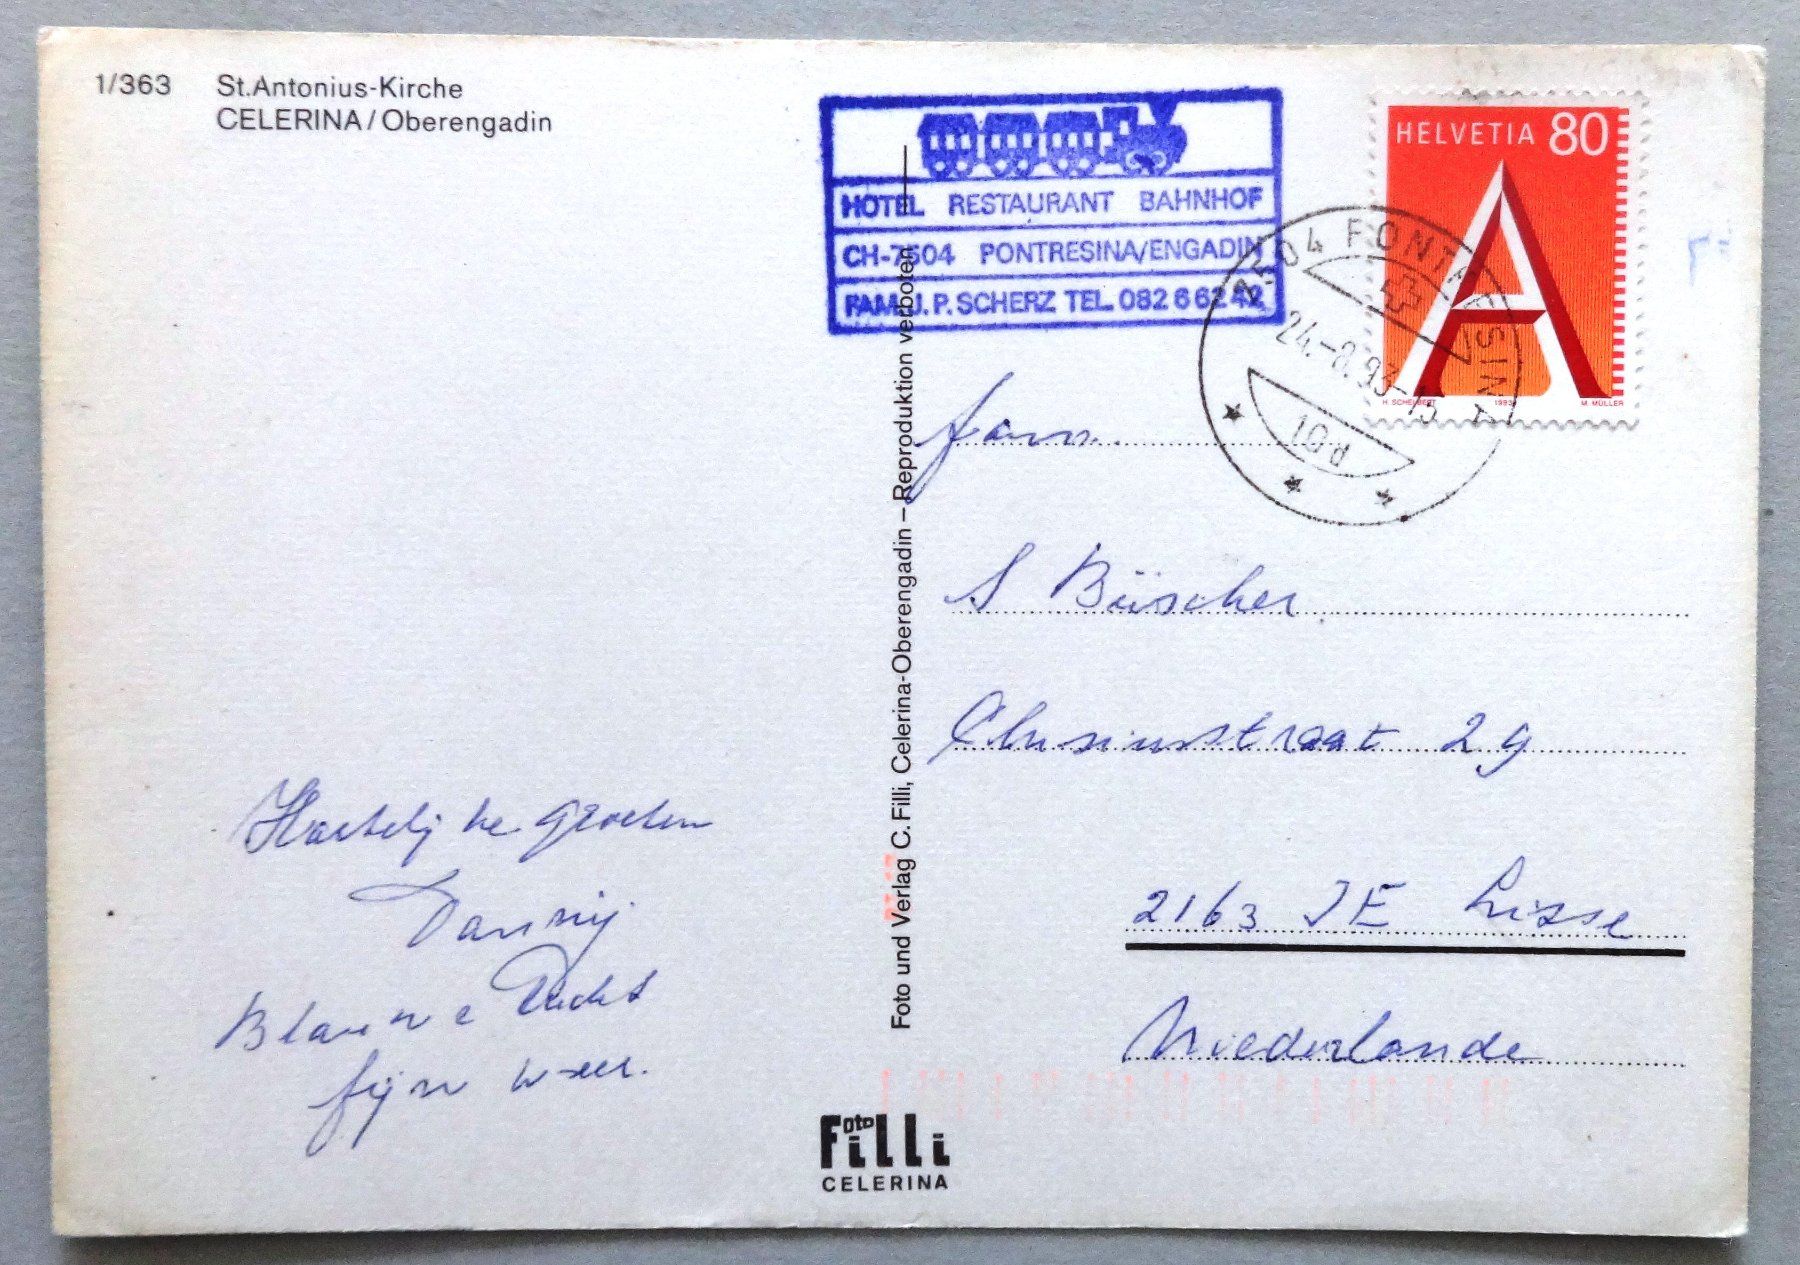 1/363 St.Antonius-Kirche
CELERINA/Oberengadin
HOTEL RESTAURANT BAHNHOF
CH-7504 PONTRESINA/ENGADIN
FAM. J. P. SCHERZ TEL. 082 6 62 42
HELVETIA 80
A
H. SCHELBERT 1993 M. MÜLLER
7504 PONTRESINA
24.-8.93-15
10d
Foto und Verlag C. Filli, Celerina-Oberengadin – Reproduktion verboten
fam.
S Büscher
Clusiusstraat 29
2163 JE Lisse
Niederlande
Hartelijke groeten
Danny
Blauwe lucht
fijn weer.
Foto
Filli
CELERINA